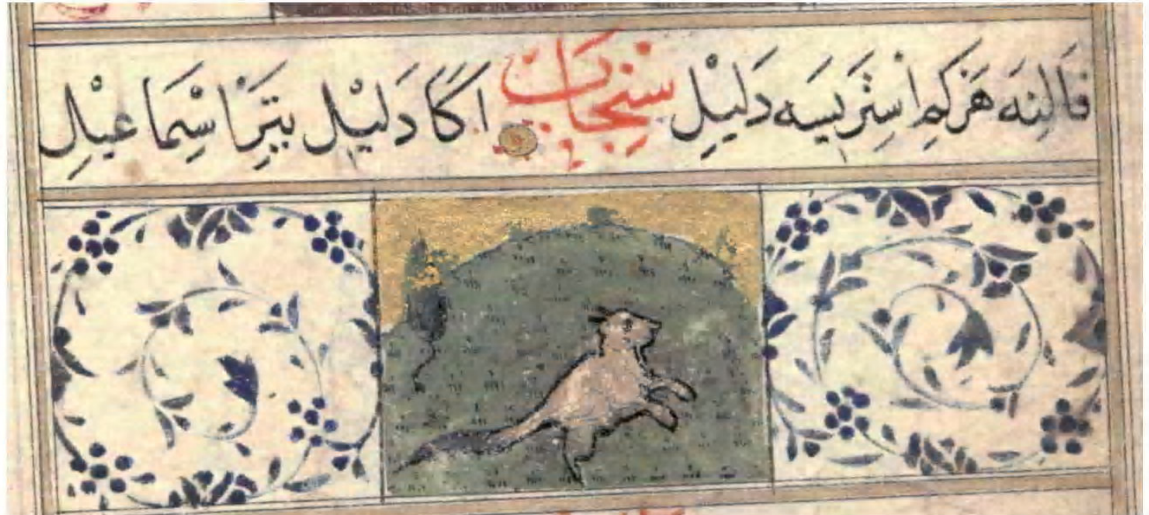 فَالِنَه هَرْ كِمْ اسْتَرِيسَه دَلِيْلِ سِنْجَابْ اكَا دَلِيْلِ يتَرْ اسْمَاعِيْلِ